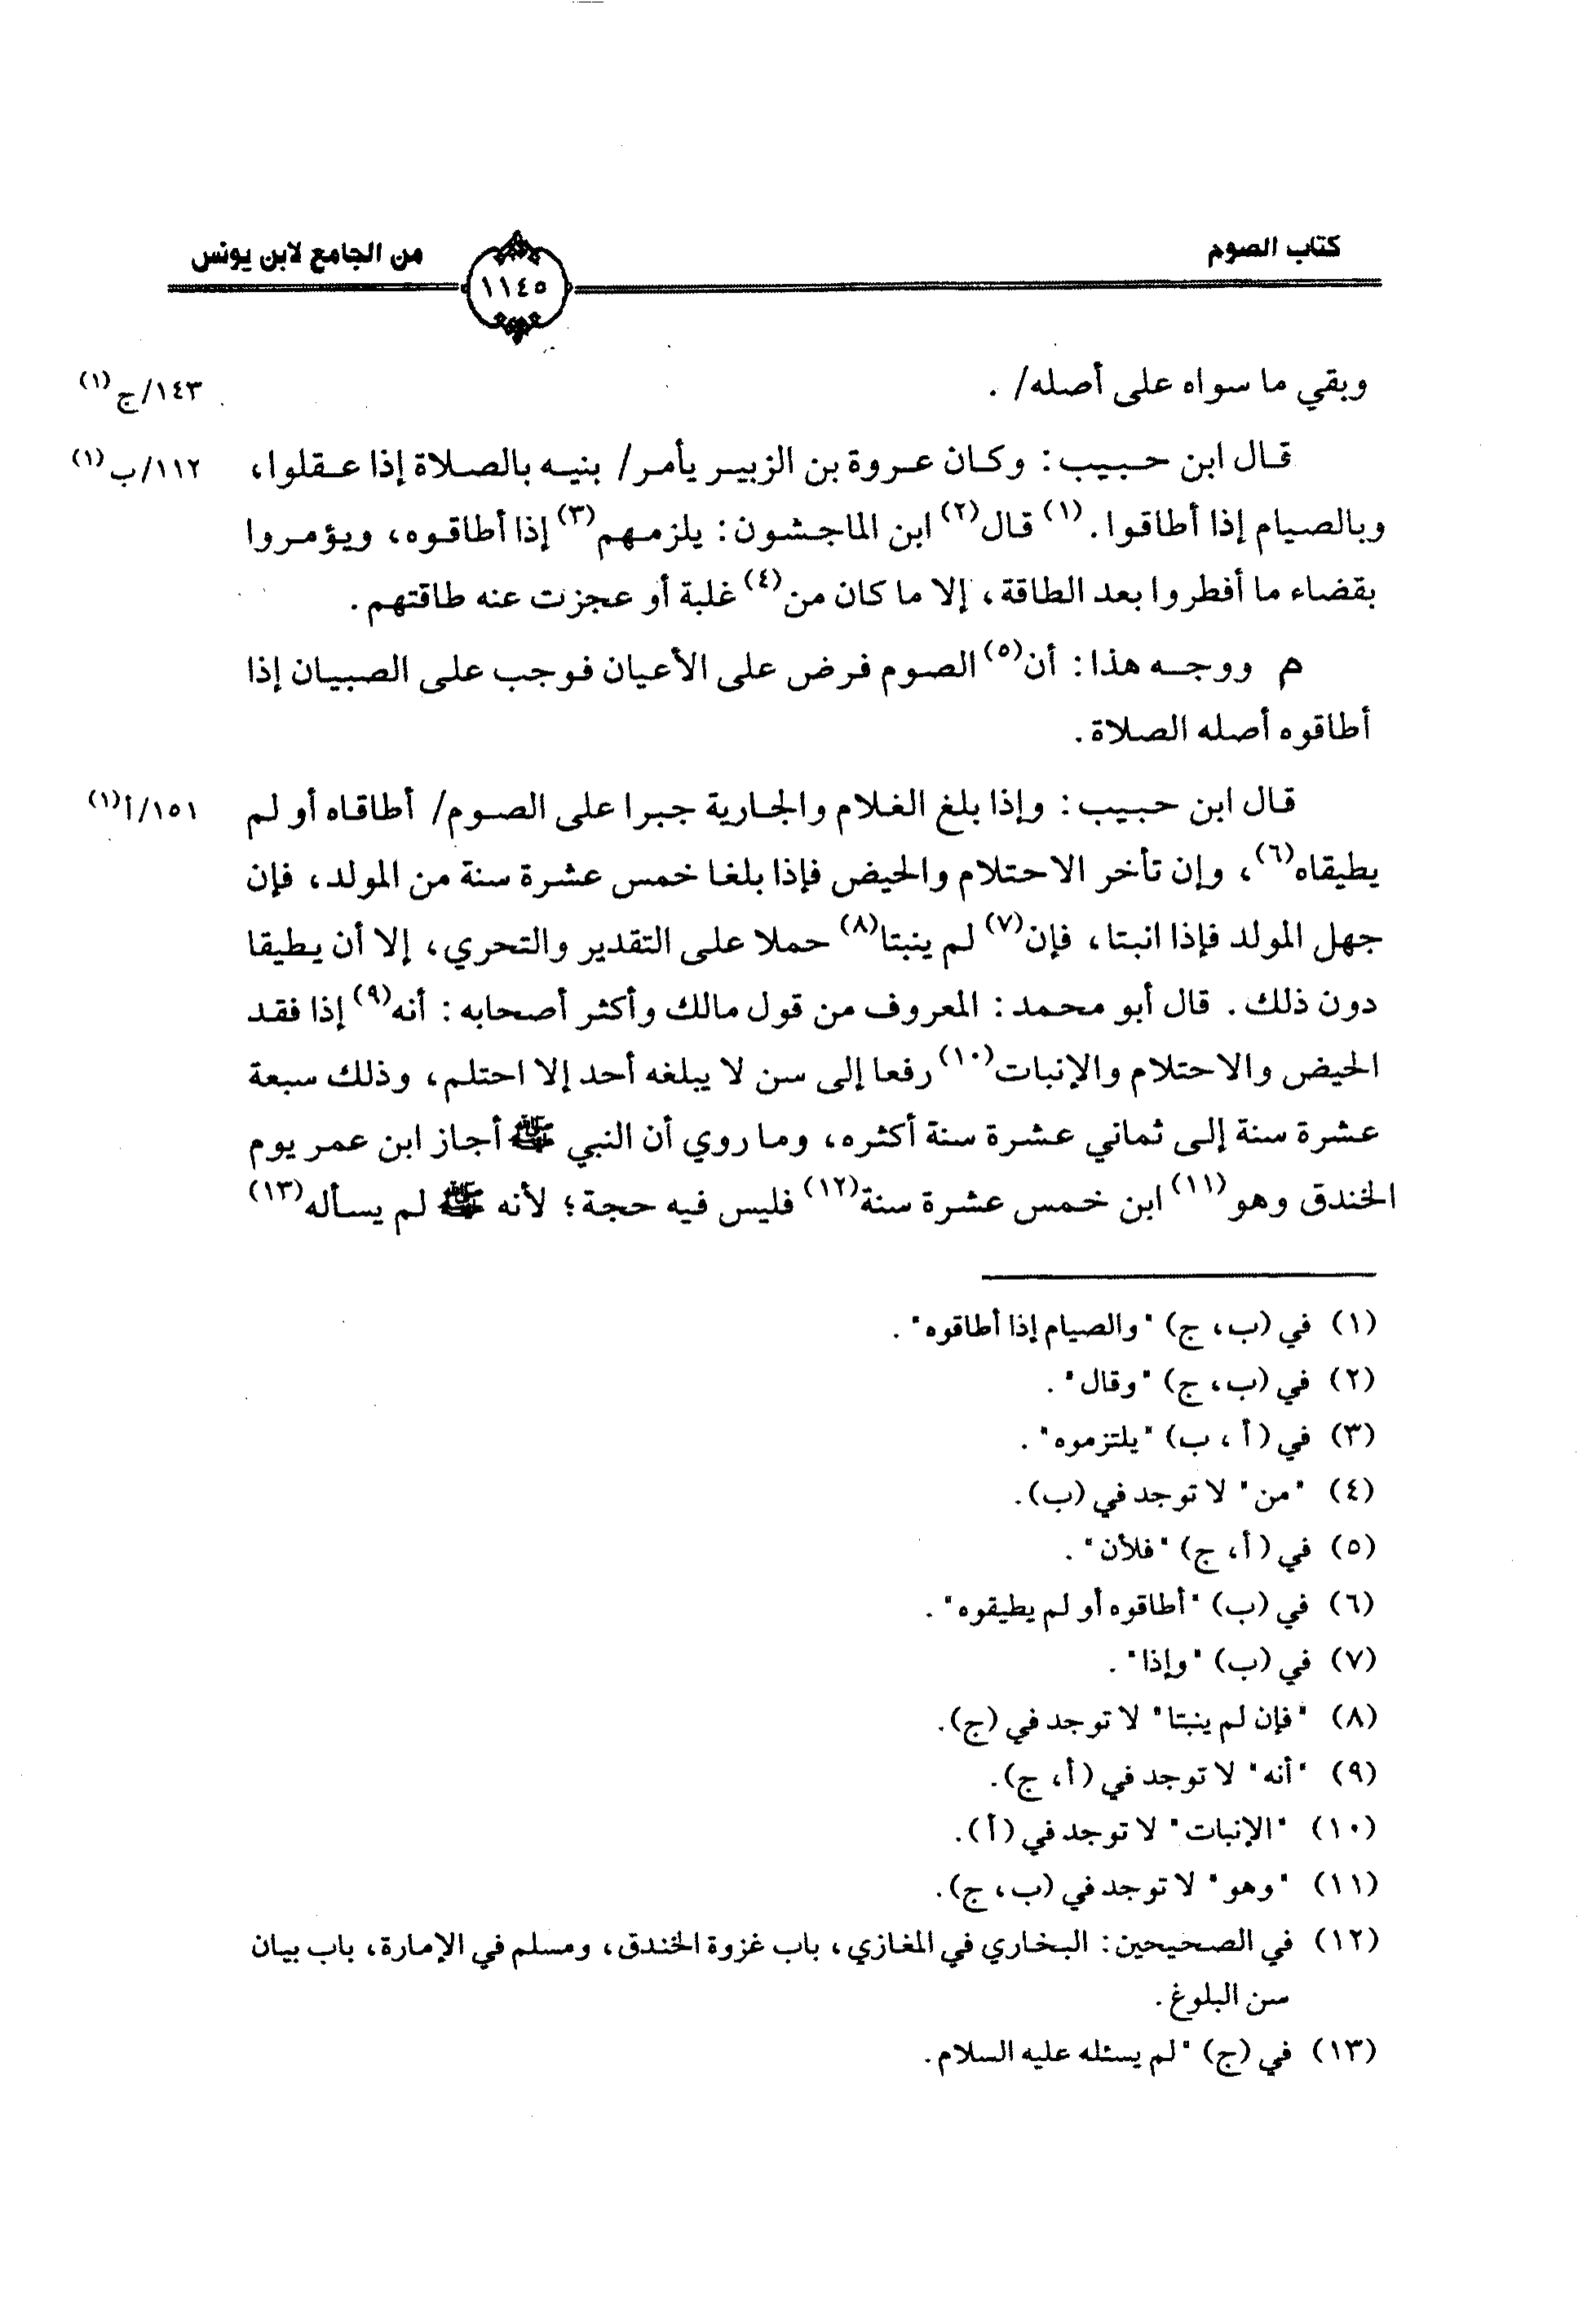 كتاب الصوم
١١٤٥
من الجامع لابن يونس
وبقي ما سواه على أصله/ .
١٤٣/ج (١)
قال ابن حبيب: وكان عروة بن الزبير يأمر/ بنيه بالصلاة إذا عقلوا،
١١٢/ب (١)
وبالصيام إذا أطاقوا. (١) قال (٢) ابن الماجشون: يلزمهم (٣) إذا أطاقوه، ويؤمروا
بقضاء ما أفطروا بعد الطاقة، إلا ما كان من (٤) غلبة أو عجزت عنه طاقتهم.
م ووجه هذا: أن (٥) الصوم فرض على الأعيان فوجب على الصبيان إذا
أطاقوه أصله الصلاة.
قال ابن حبيب: وإذا بلغ الغلام والجارية جبرا على الصوم/ أطاقاه أو لم
١٥١/أ (١)
يطيقاه (٦)، وإن تأخر الاحتلام والحيض فإذا بلغا خمس عشرة سنة من المولد، فإن
جهل المولد فإذا انبتا، فإن (٧) لم ينبتا (٨) حملا على التقدير والتحري، إلا أن يطيقا
دون ذلك. قال أبو محمد: المعروف من قول مالك وأكثر أصحابه: أنه (٩) إذا فقد
الحيض والاحتلام والإنبات (١٠) رفعا إلى سن لا يبلغه أحد إلا احتلم، وذلك سبعة
عشرة سنة إلى ثماني عشرة سنة أكثره، وما روي أن النبي ﷺ أجاز ابن عمر يوم
الخندق وهو (١١) ابن خمس عشرة سنة (١٢) فليس فيه حجة؛ لأنه ﷺ لم يسأله (١٣)
(١) في (ب، ج) "والصيام إذا أطاقوه".
(٢) في (ب، ج) "وقال".
(٣) في (أ، ب) "يلتزموه".
(٤) "من" لا توجد في (ب).
(٥) في (أ، ج) "فلأن".
(٦) في (ب) "أطاقوه أو لم يطيقوه".
(٧) في (ب) "وإذا".
(٨) "فإن لم ينبتا" لا توجد في (ج).
(٩) "أنه" لا توجد في (أ، ج).
(١٠) "الإنبات" لا توجد في (أ).
(١١) "وهو" لا توجد في (ب، ج).
(١٢) في الصحيحين: البخاري في المغازي، باب غزوة الخندق، ومسلم في الإمارة، باب بيان
سن البلوغ.
(١٣) في (ج) "لم يسئله عليه السلام.